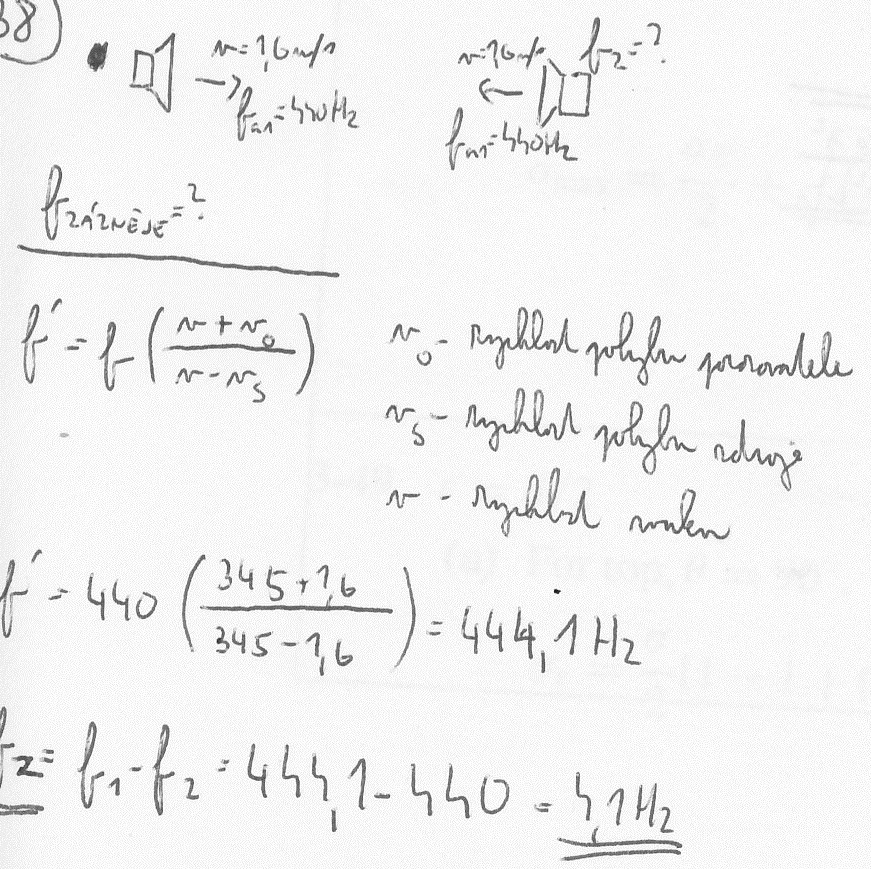 38
v=1,6m/s
v=1,6m/s f₂=?
fₐ₁=440Hz
fₐ₁=440Hz
fZÁZNĚJE=?
f' = f (v + v₀ / v - vₛ)
v₀ - rychlost pohybu pozorovatele
vₛ - rychlost pohybu zdroje
v - rychlost zvuku
f' = 440 (345+1,6 / 345-1,6) = 444,1Hz
fz = f₁-f₂ = 444,1-440 = 4,1Hz